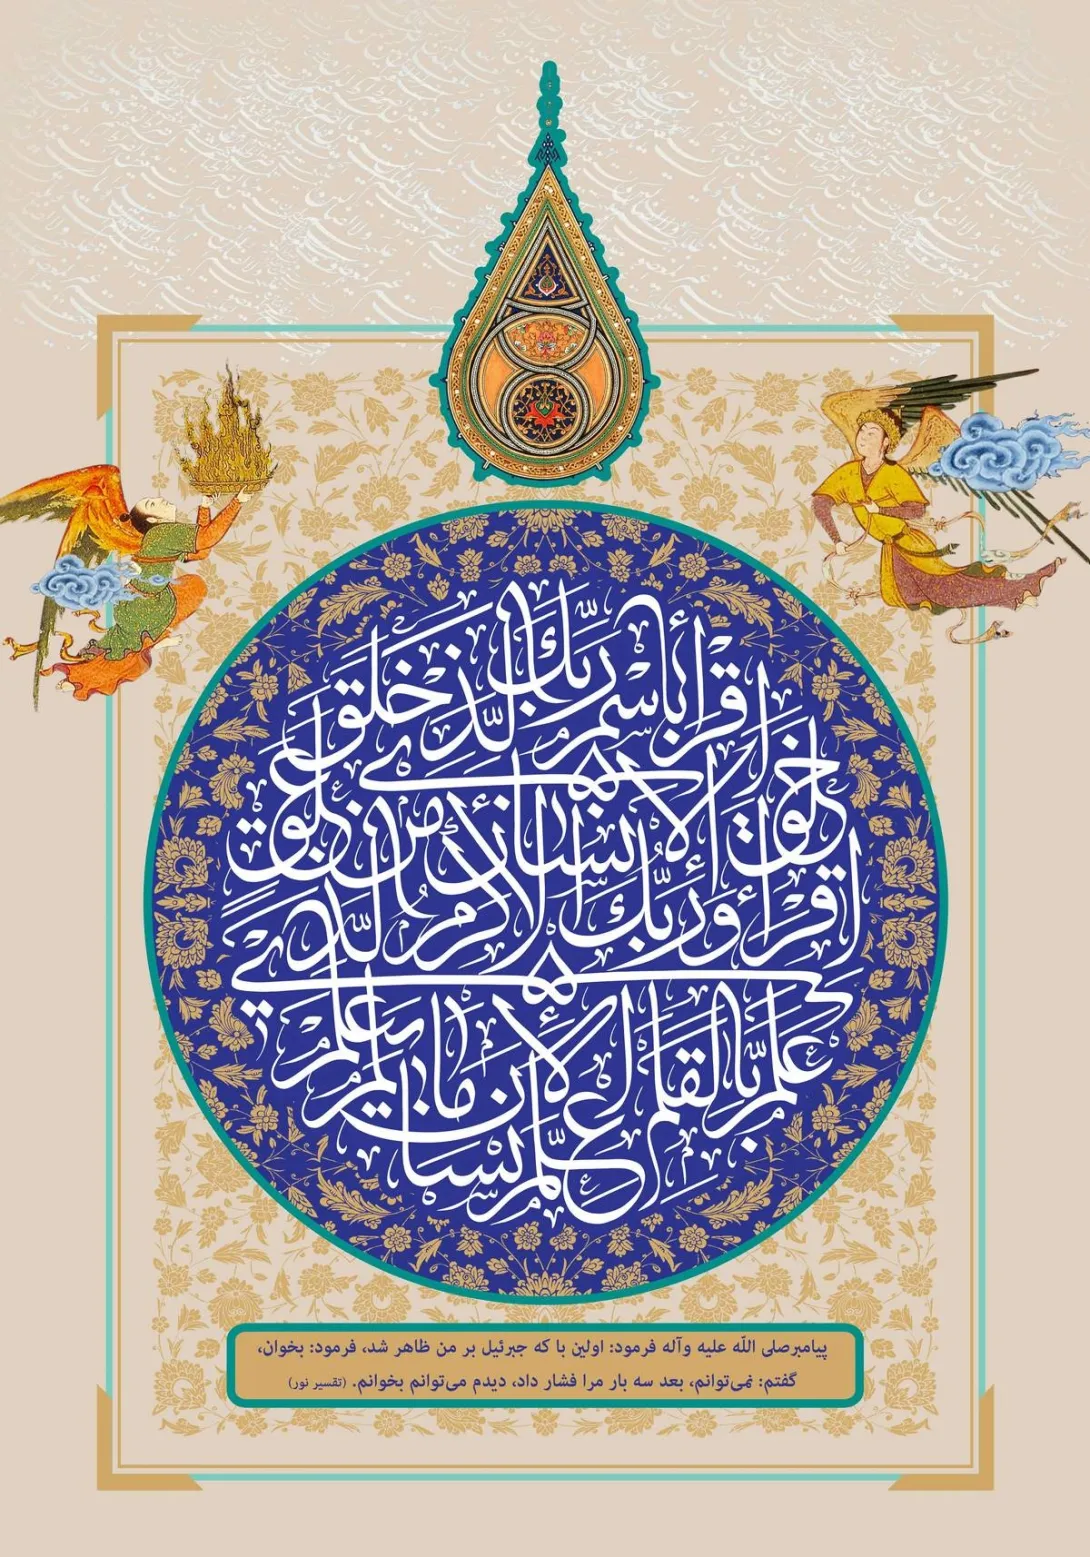 اقرأ باسم ربّك الّذي خلق
خلق الإنسان من علق
اقرأ وربّك الأكرم الّذي
علّم بالقلم
علّم الإنسان ما لم يعلم
پیامبرصلی اللّه علیه وآله فرمود: اولین با که جبرئیل بر من ظاهر شد، فرمود: بخوان،
گفتم: نمی‌توانم، بعد سه بار مرا فشار داد، دیدم می‌توانم بخوانم. (تفسیر نور)